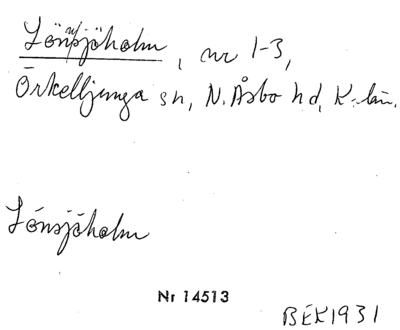 Lönsjöholm, nr 1-3,
Örkelljunga sn, N. Åsbo hd, K-län.
Lönsjöholm
Nr 14513
BEK1931